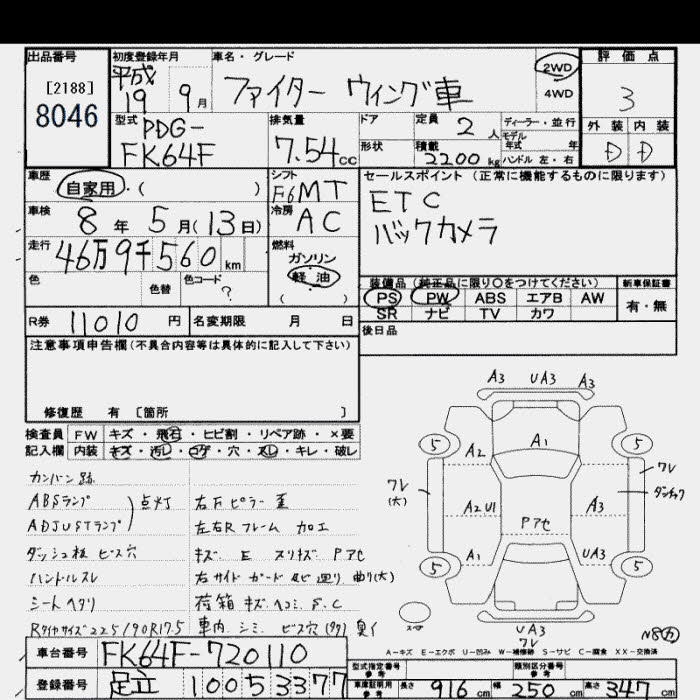 出品番号 初度登録年月 車名・グレード 評価点
[2188] 平成 2WD
8046 19 9月 ファイター ウィング車 4WD 3
型式 排気量 ドア 定員 ディーラー・並行 外装 内装
PDG- 2人 モデル年式 年 D D
FK64F 7.54cc 形状 積載 2200kg ハンドル 左・右
車歴 シフト セールスポイント (正常に機能するものに限ります)
自家用・( ) F6MT ETC
車検 8年 5月(13日) 冷房 AC バックカメラ
走行 46万9千560km 燃料 ガソリン
色 色替 色コード ? 軽油 ( )
装備品 (純正品に限り○をつけてください) 新車保証書
PS PW ABS エアB AW 有・無
SR ナビ TV カワ
R券 11010円 名変期限 月 日 後日品
注意事項申告欄(不具合内容等は具体的に記入して下さい)
修復歴 有 [箇所 ]
検査員 FW キズ・飛石・ヒビ割・リペア跡・×要
記入欄 内装 キズ・汚レ・コゲ・穴・スレ・キレ・破レ
カンバン跡
ABSランプ 点灯 右Fピラー
ADJUSTランプ 左右Rフレーム 加工
ダッシュ板 ビス穴 キズ E スリキズ Pアセ
ハンドルスレ 右サイドガード 廻り 曲り(大)
シートヘタリ 荷箱 キズ ヘコミ S.C
Rタイヤサイズ225/90R17.5 車内 シミ ビス穴(タタ) 臭イ
A3 UA3 A3
5 A2 A1 5
ワレ(大) ワレ
ダンチック
A2 U1 PアセA3
5 A1 UA3 5
スペア
UA3
ワレ
A-キズ E-エクボ U-凹み W-補修跡 S-サビ C-腐食 XX-交換済
車台番号 FK64F-720110
型式指定番号 参考 類別区分番号 参考
登録番号 足立 100 5 3377
車庫証明用 参考 長さ 916cm 幅 250cm 高さ 347cm